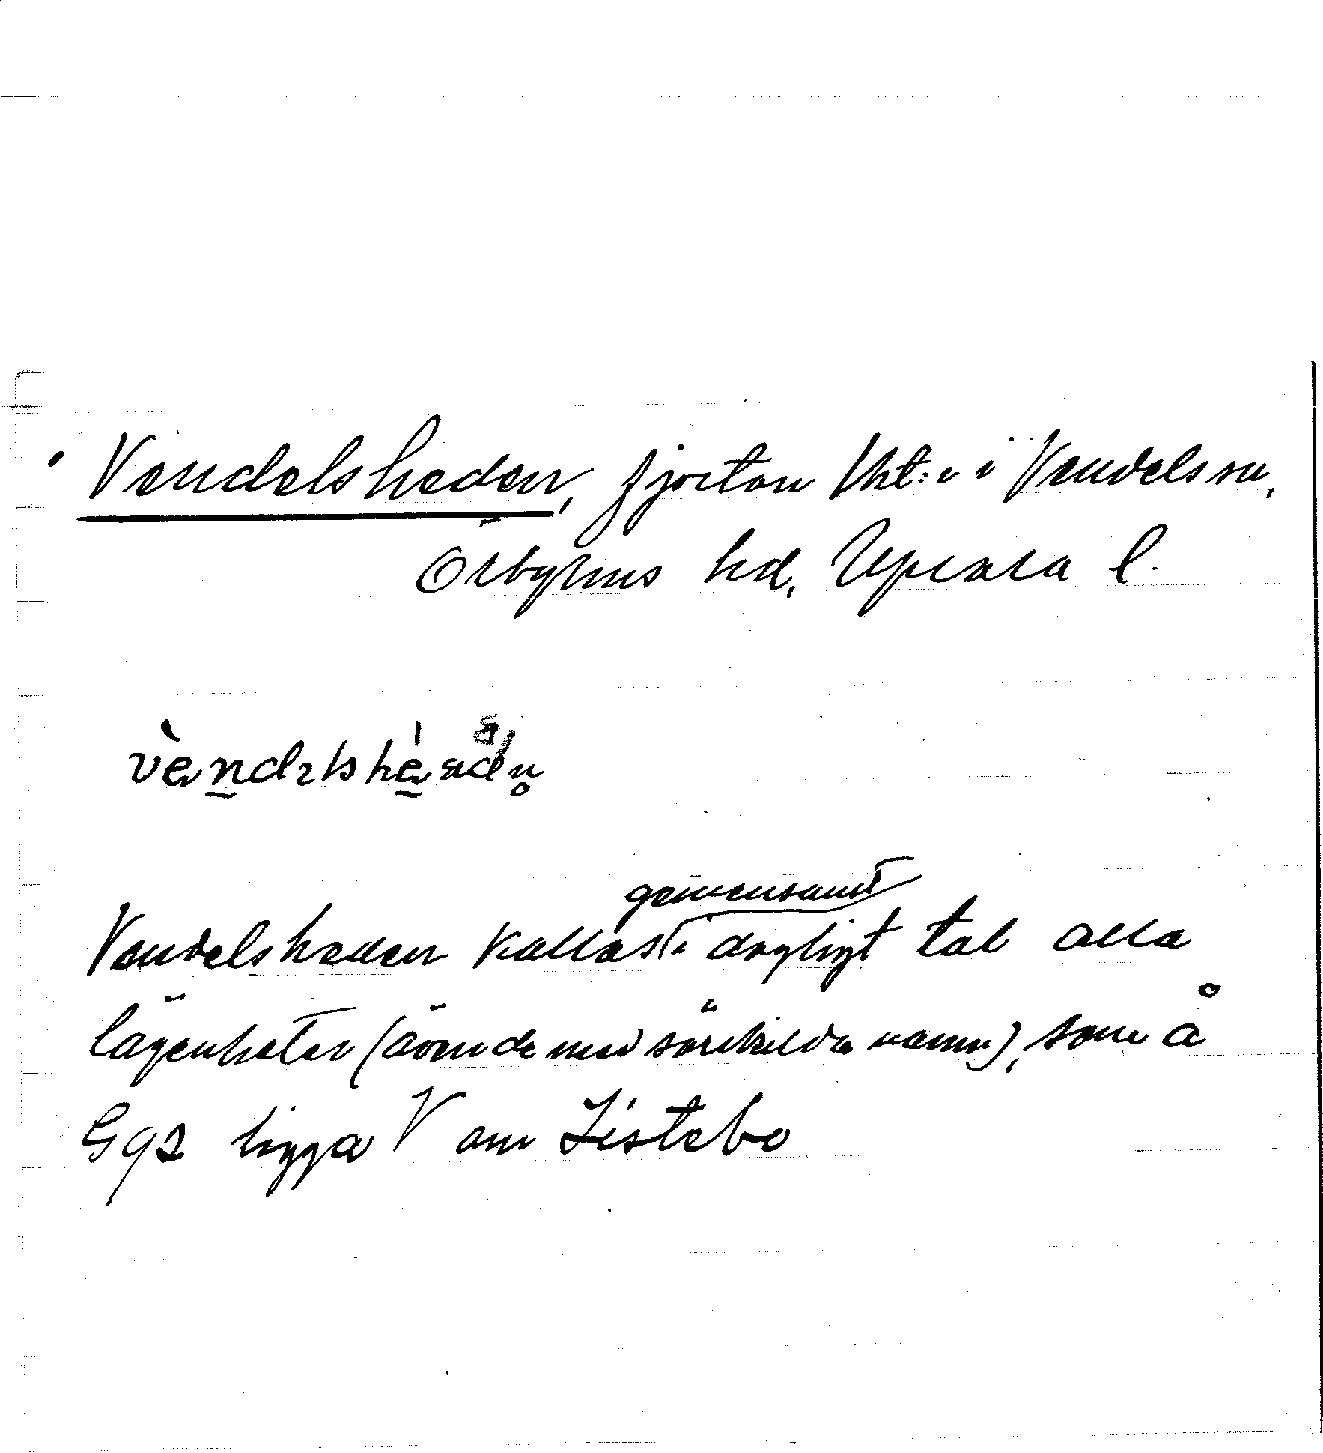 Vendelsheden, fjorton lht:er i Vendels sn,
Örbyhus hd, Upsala l.
Vendelsheden kallas gemensamt i dagligt tal alla
lägenheter (även de med särskilda namn), som å
Gqs ligga V om Listebo